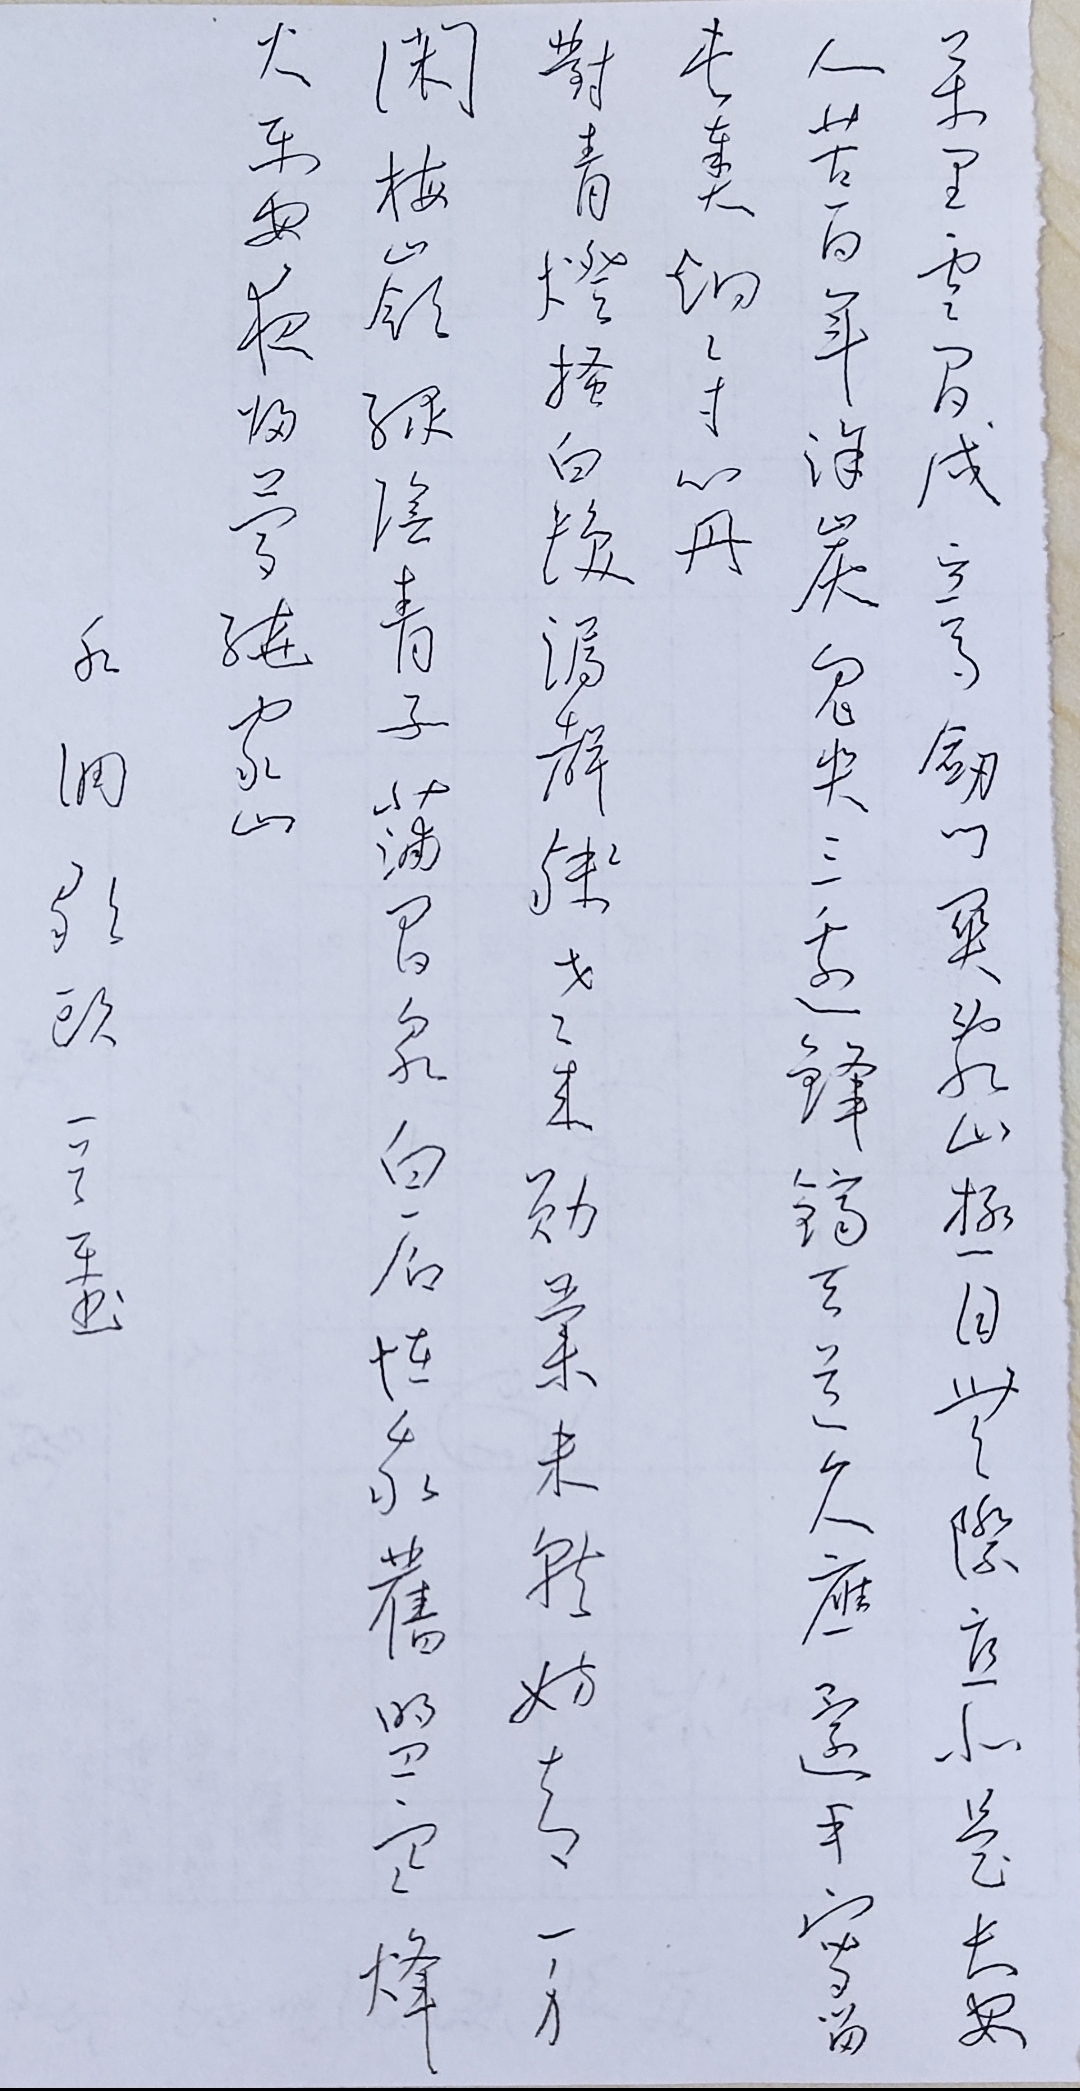 萬里雲間戍立馬劍門關亂山極目無際直北是長安
人苦百年塗炭鬼哭三邊鋒鏑天道久應還手寫留
屯奏炯々寸心丹
對青燈搔白髮漏聲殘老來勛業未就妨却一身
閑梅嶺綠陰青子蒲澗泉白石怪我舊盟寒烽
火平安夜歸夢繞家山
水調歌頭